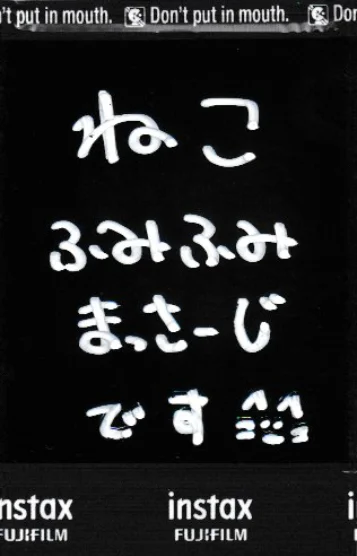 't put in mouth. Don't put in mouth. Don
ねこ
ふみふみ
まっさーじ
です
instax instax i
FUJIFILM FUJIFILM